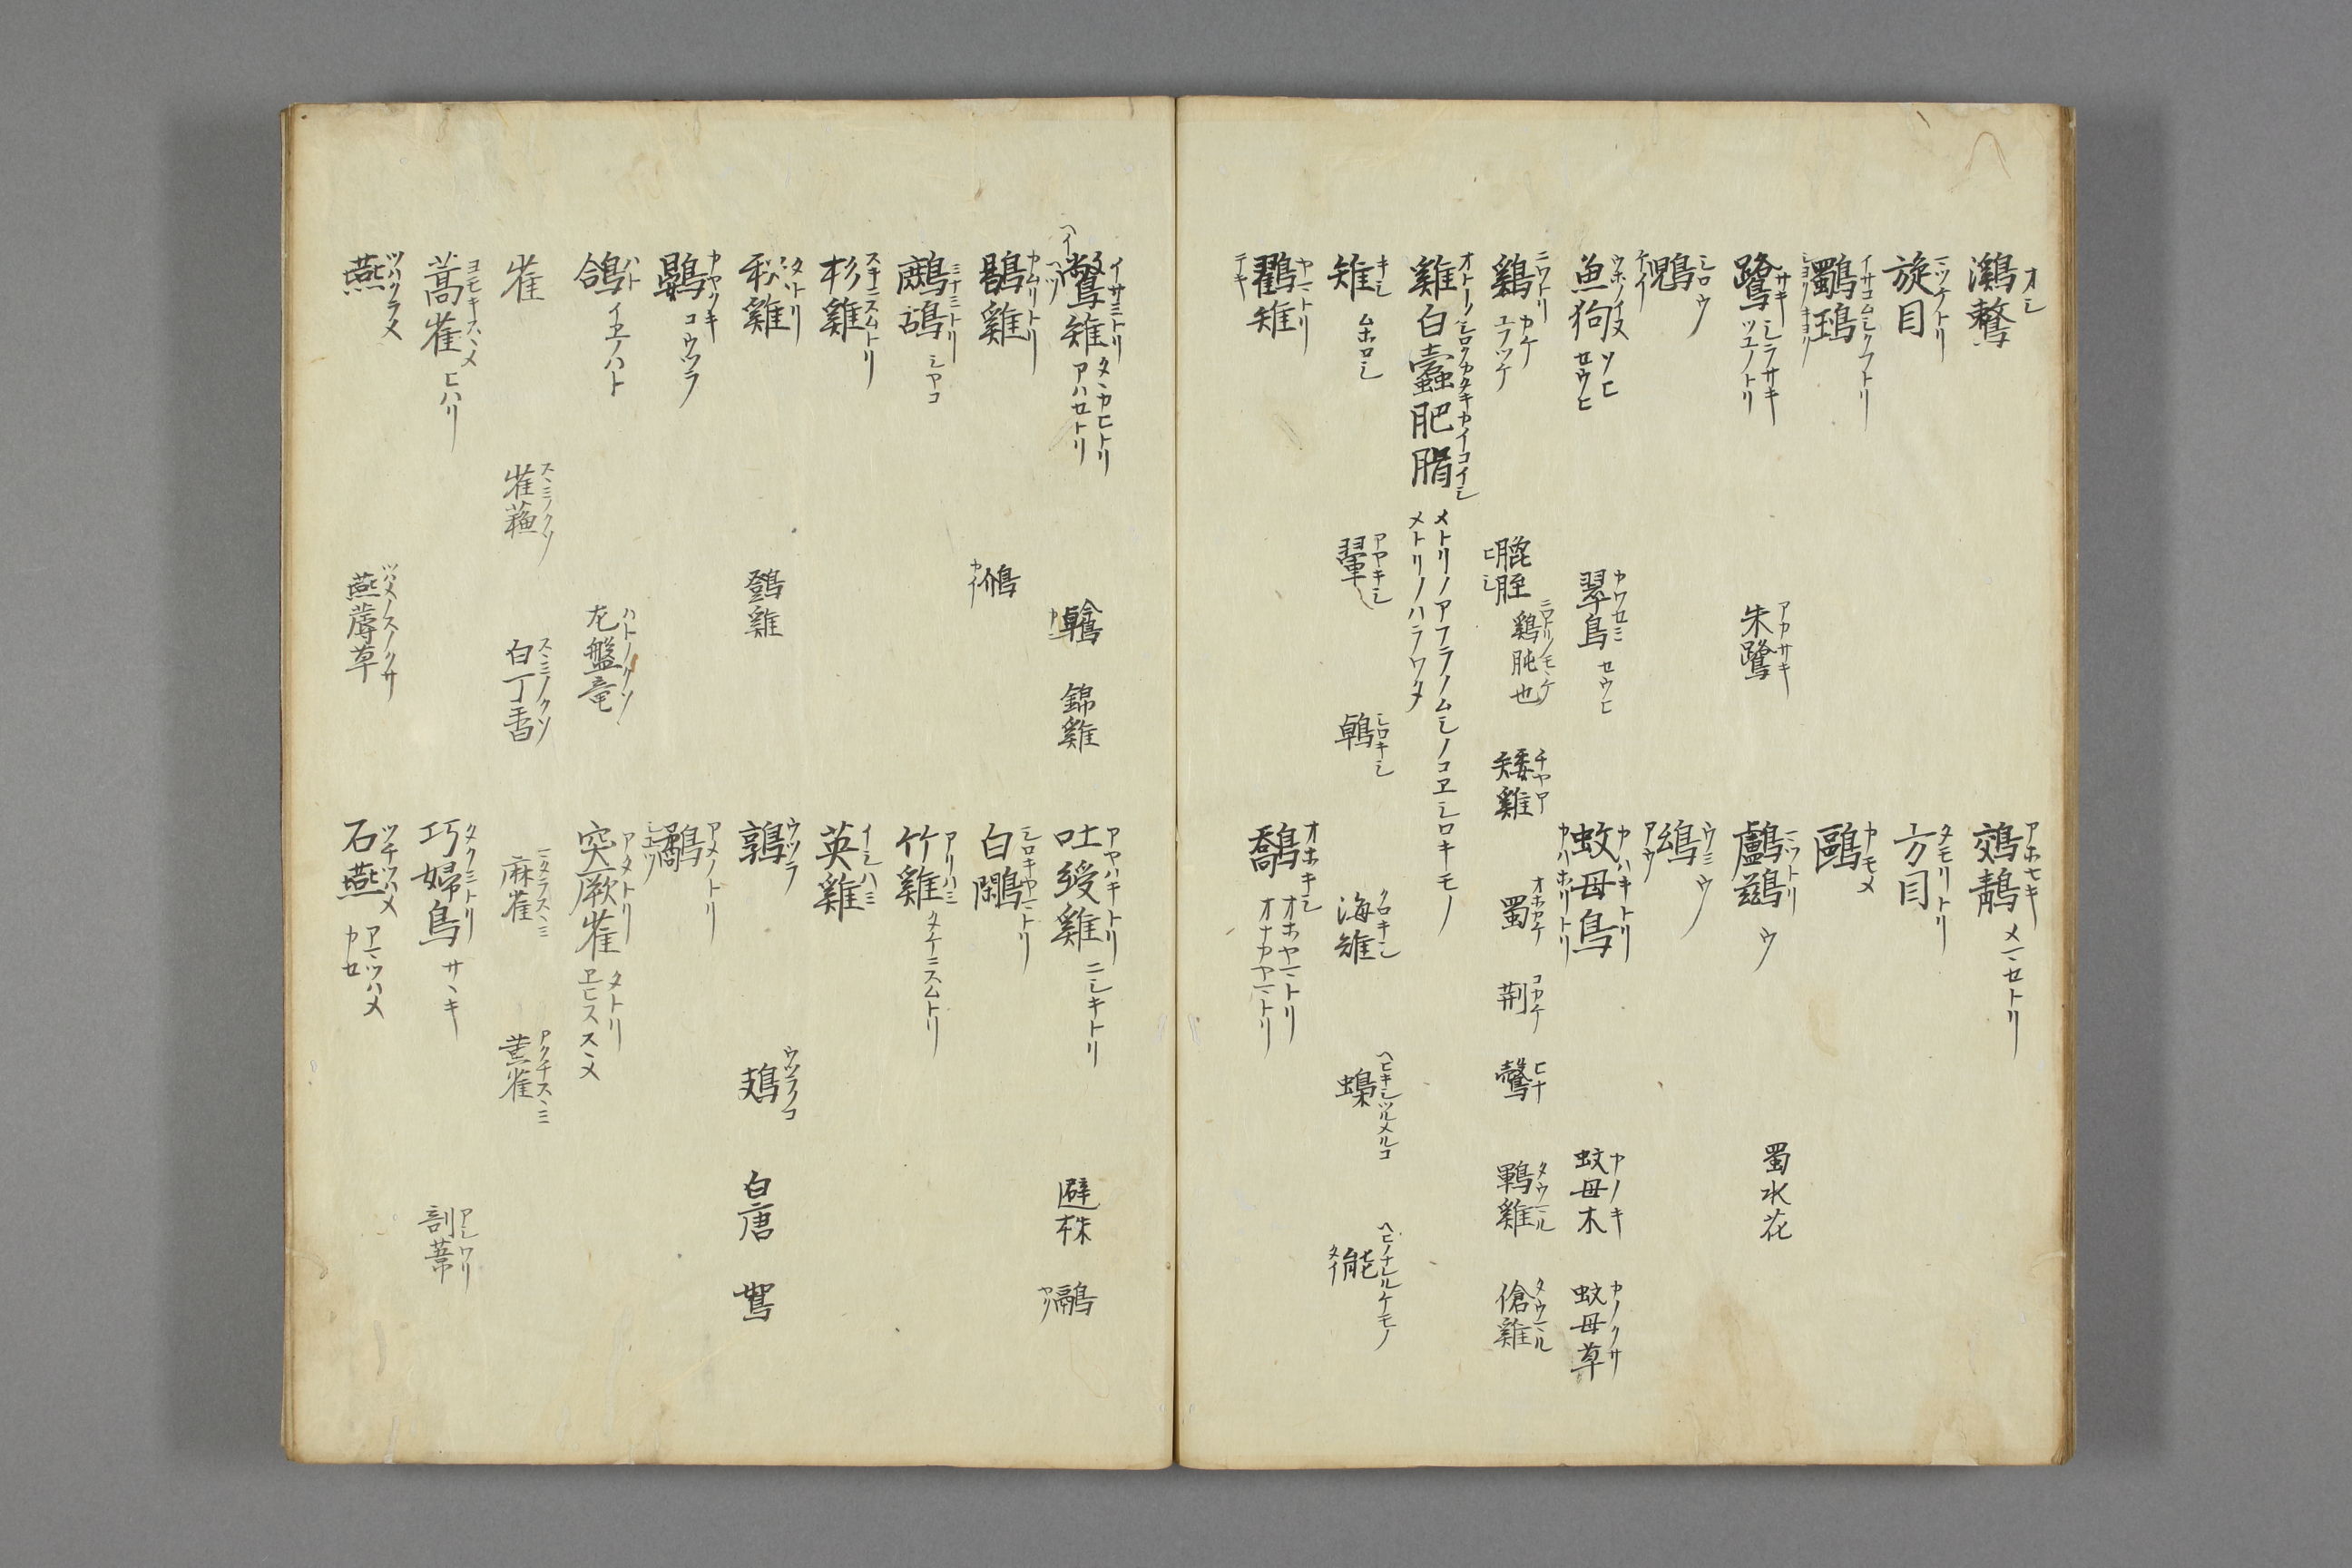 鸂鶒 オシ
鵁鶄 アホセキ メマセトリ
旋目
方目 タモリトリ
鸀𤦹 イサコムシクフトリ
鷗 カモメ
鷺 サギ シラサキ ツユノトリ
朱鷺 アカサキ
鸕鷀 ウ
蜀水花
鶂 シロウ
鴗 ウミウ
魚狗 ウホノイヌ ソヒ セウヒ
翠鳥 カワセミ セウヒ
蚊母鳥 カハキトリ カハホリトリ
蚊母木 カノキ
蚊母草 カノクサ
鷄 ニワトリ カケ ユフツケ
膍胵 ヒシ 鷄肫也
矮雞 チヤア
蜀 オホカケ
荆 コカケ
ヒナ
鶤雞 タウマル
傖雞 タウマル
雞白蠹肥脶 オトリノシロクカタキカイコイシ
メトリノアフラノムシノコヱシロキモノ
メトリノハラワタ
雉 キシ ムホロシ
翬 アヤキシ
鵫 シロキシ
海雉 クロキシ
ヘヒキシツルメルコ
能 ヘヒノナレルケモノ
鸐雉 ヤマトリ テキ
鷮 オホキシ オホヤマトリ
オナカヤマトリ
鷩雉 イサミトリ タヽカヒトリ
アハセトリ
錦雞
吐綬雞 アヤハキトリ ニシキトリ
避株
鷊
鶡雞 カムリトリ
鳻 カイ
白鷴 シロキヤマトリ
鷓鴣 ミナミトリ シヤコ
竹雞 アリハミ タケニスムトリ
杉雞 スキニスムトリ
英雞 イシハミ
秧雞 タトリ
鶏雞
鶉 ウツラ
鳼 ウツラノコ
白唐
鴽
鷃 カヤクキ コウツラ
鷸 アメノトリ
鴿 ハト イエノハト
左盤竜 ハトノクソ
突厥雀 アタトリ タトリ
ヱヒススヽメ
雀
雀蘓 スヽミノクソ
白丁香 スヽミノクソ
麻雀 マタラスヽミ
黄雀 アクチスヽミ
蒿雀 ヨモキスヽメ ヒハリ
巧婦鳥 タクミトリ サヽキ
剖葦 アシワリ
燕 ツハクラメ
燕蓐草 ツハメノスノクサ
石燕 ツチツハメ アマツハメ